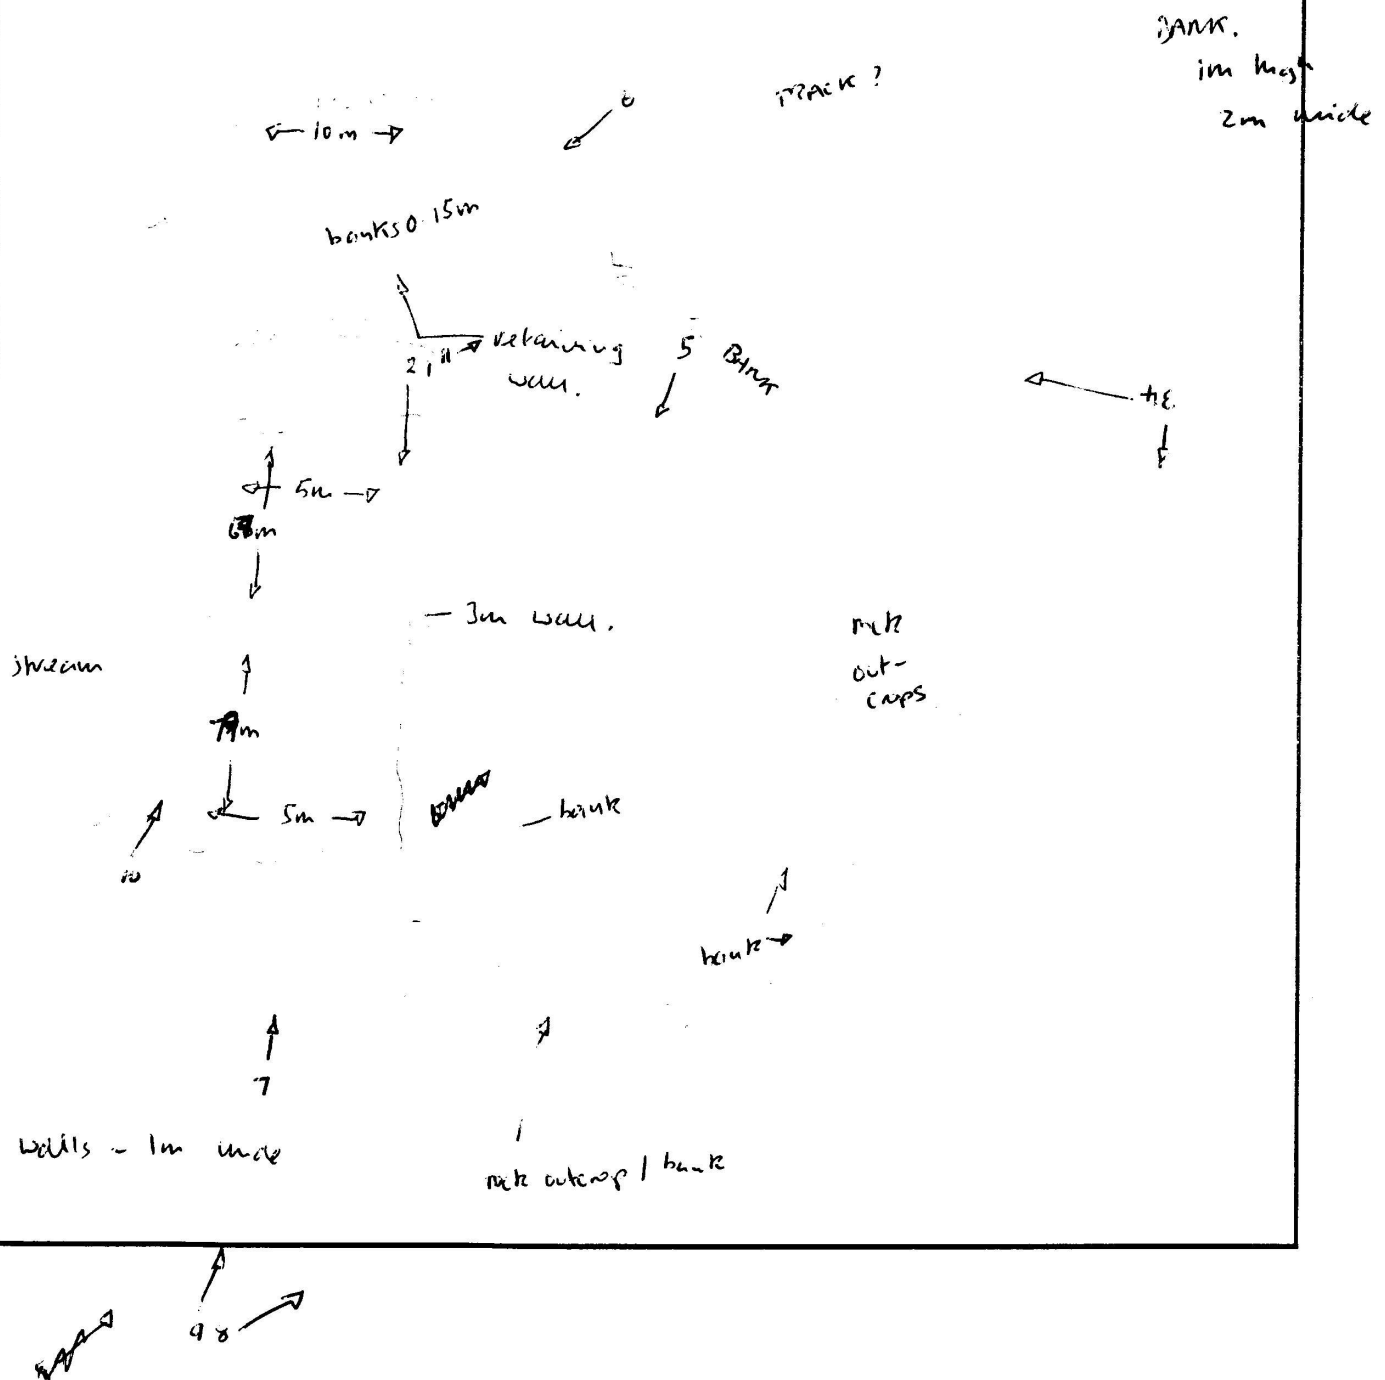 BANK.
1m high
2m wide
TRACK?
6
10m
banks 0.15m
2, 11
retaining
wall.
5 BANK
34
5m
3m wall.
rock
out-
crops
stream
5m
bank
10
bank
7
walls - 1m wide
rock outcrop / bank
9 8